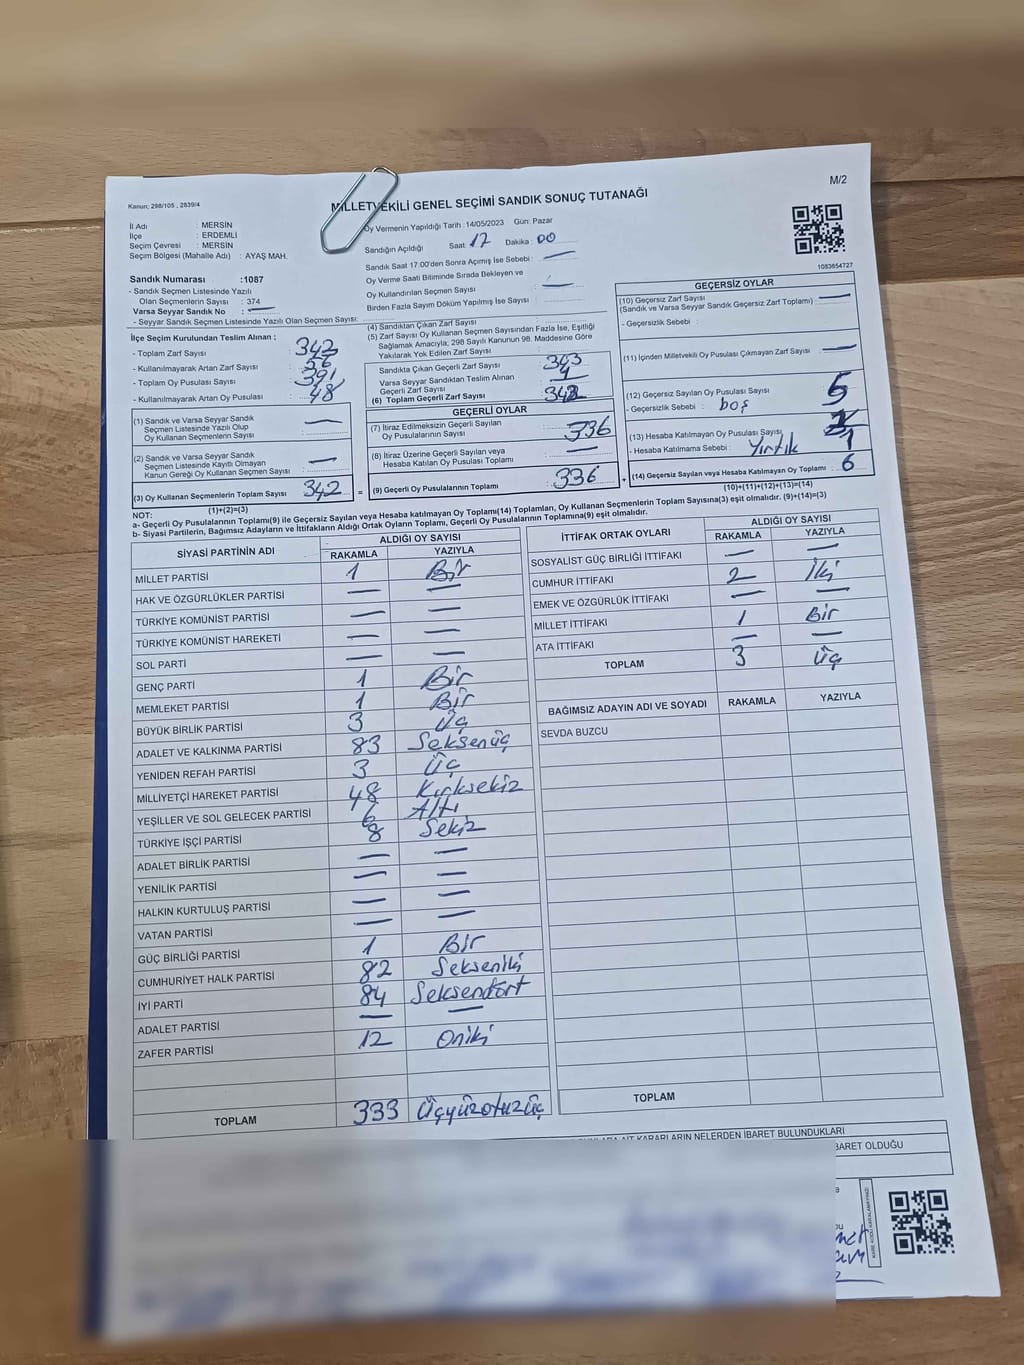 M/2
Kanun; 298/105 , 2839/4
MİLLETVEKİLİ GENEL SEÇİMİ SANDIK SONUÇ TUTANAĞI
İl Adı : MERSİN
İlçe : ERDEMLİ
Seçim Çevresi : MERSİN
Seçim Bölgesi (Mahalle Adı) : AYAŞ MAH.
Oy Vermenin Yapıldığı Tarih : 14/05/2023 Gün: Pazar
Sandığın Açıldığı Saat 17 Dakika : 00
Sandık Saat 17:00'den Sonra Açılmış İse Sebebi : —
Oy Verme Saati Bitiminde Sırada Bekleyen ve
Oy Kullandırılan Seçmen Sayısı : —
Birden Fazla Sayım Döküm Yapılmış İse Sayısı :
1083654727
Sandık Numarası :1087
- Sandık Seçmen Listesinde Yazılı
Olan Seçmenlerin Sayısı : 374
Varsa Seyyar Sandık No : —
- Seyyar Sandık Seçmen Listesinde Yazılı Olan Seçmen Sayısı:
İlçe Seçim Kurulundan Teslim Alınan ;
- Toplam Zarf Sayısı : 342
- Kullanılmayarak Artan Zarf Sayısı :
- Toplam Oy Pusulası Sayısı : 391
- Kullanılmayarak Artan Oy Pusulası : 48
(1) Sandık ve Varsa Seyyar Sandık
Seçmen Listesinde Yazılı Olup
Oy Kullanan Seçmenlerin Sayısı : —
(2) Sandık ve Varsa Seyyar Sandık
Seçmen Listesinde Kayıtlı Olmayan
Kanun Gereği Oy Kullanan Seçmen Sayısı : —
(3) Oy Kullanan Seçmenlerin Toplam Sayısı : 342
(1)+(2)=(3)
(4) Sandıktan Çıkan Zarf Sayısı :
(5) Zarf Sayısı Oy Kullanan Seçmen Sayısından Fazla İse, Eşitliği
Sağlamak Amacıyla; 298 Sayılı Kanunun 98. Maddesine Göre
Yakılarak Yok Edilen Zarf Sayısı :
Sandıkta Çıkan Geçerli Zarf Sayısı : 343
Varsa Seyyar Sandıktan Teslim Alınan
Geçerli Zarf Sayısı :
(6) Toplam Geçerli Zarf Sayısı : 342
GEÇERLİ OYLAR
(7) İtiraz Edilmeksizin Geçerli Sayılan
Oy Pusulalarının Sayısı : 336
(8) İtiraz Üzerine Geçerli Sayılan veya
Hesaba Katılan Oy Pusulası Toplamı : —
= (9) Geçerli Oy Pusulalarının Toplamı : 336
GEÇERSİZ OYLAR
(10) Geçersiz Zarf Sayısı : —
(Sandık ve Varsa Seyyar Sandık Geçersiz Zarf Toplamı)
- Geçersizlik Sebebi :
(11) İçinden Milletvekili Oy Pusulası Çıkmayan Zarf Sayısı : —
(12) Geçersiz Sayılan Oy Pusulası Sayısı : 5
- Geçersizlik Sebebi : boş
(13) Hesaba Katılmayan Oy Pusulası Sayısı : 1
- Hesaba Katılmama Sebebi : Yırtık
+ (14) Geçersiz Sayılan veya Hesaba Katılmayan Oy Toplamı : 6
(10)+(11)+(12)+(13)=(14)
NOT:
a- Geçerli Oy Pusulaları Toplamı(9) ile Geçersiz Sayılan veya Hesaba katılmayan Oy Toplamı(14) Toplamları, Oy Kullanan Seçmenlerin Toplam Sayısına(3) eşit olmalıdır. (9)+(14)=(3)
b- Siyasi Partilerin, Bağımsız Adayların ve İttifakların Aldığı Ortak Oyların Toplamı, Geçerli Oy Pusulalarının Toplamına(9) eşit olmalıdır.
SİYASİ PARTİNİN ADI ALDIĞI OY SAYISI
RAKAMLA YAZIYLA
MİLLET PARTİSİ 1 Bir
HAK VE ÖZGÜRLÜKLER PARTİSİ — —
TÜRKİYE KOMÜNİST PARTİSİ — —
TÜRKİYE KOMÜNİST HAREKETİ — —
SOL PARTİ — —
GENÇ PARTİ 1 Bir
MEMLEKET PARTİSİ 1 Bir
BÜYÜK BİRLİK PARTİSİ 3 Üç
ADALET VE KALKINMA PARTİSİ 83 Seksenüç
YENİDEN REFAH PARTİSİ 3 Üç
MİLLİYETÇİ HAREKET PARTİSİ 48 Kırksekiz
YEŞİLLER VE SOL GELECEK PARTİSİ 6 Altı
TÜRKİYE İŞÇİ PARTİSİ 8 Sekiz
ADALET BİRLİK PARTİSİ — —
YENİLİK PARTİSİ — —
HALKIN KURTULUŞ PARTİSİ — —
VATAN PARTİSİ — —
GÜÇ BİRLİĞİ PARTİSİ 1 Bir
CUMHURİYET HALK PARTİSİ 82 Sekseniki
İYİ PARTİ 84 Seksendört
ADALET PARTİSİ — —
ZAFER PARTİSİ 12 Oniki
TOPLAM 333 Üçyüzotuzüç
İTTİFAK ORTAK OYLARI ALDIĞI OY SAYISI
RAKAMLA YAZIYLA
SOSYALİST GÜÇ BİRLİĞİ İTTİFAKI — —
CUMHUR İTTİFAKI 2 İki
EMEK VE ÖZGÜRLÜK İTTİFAKI — —
MİLLET İTTİFAKI 1 Bir
ATA İTTİFAKI — —
TOPLAM 3 Üç
BAĞIMSIZ ADAYIN ADI VE SOYADI RAKAMLA YAZIYLA
SEVDA BUZCU
TOPLAM
KARARLARIN NELERDEN İBARET BULUNDUKLARI
BARET OLDUĞU